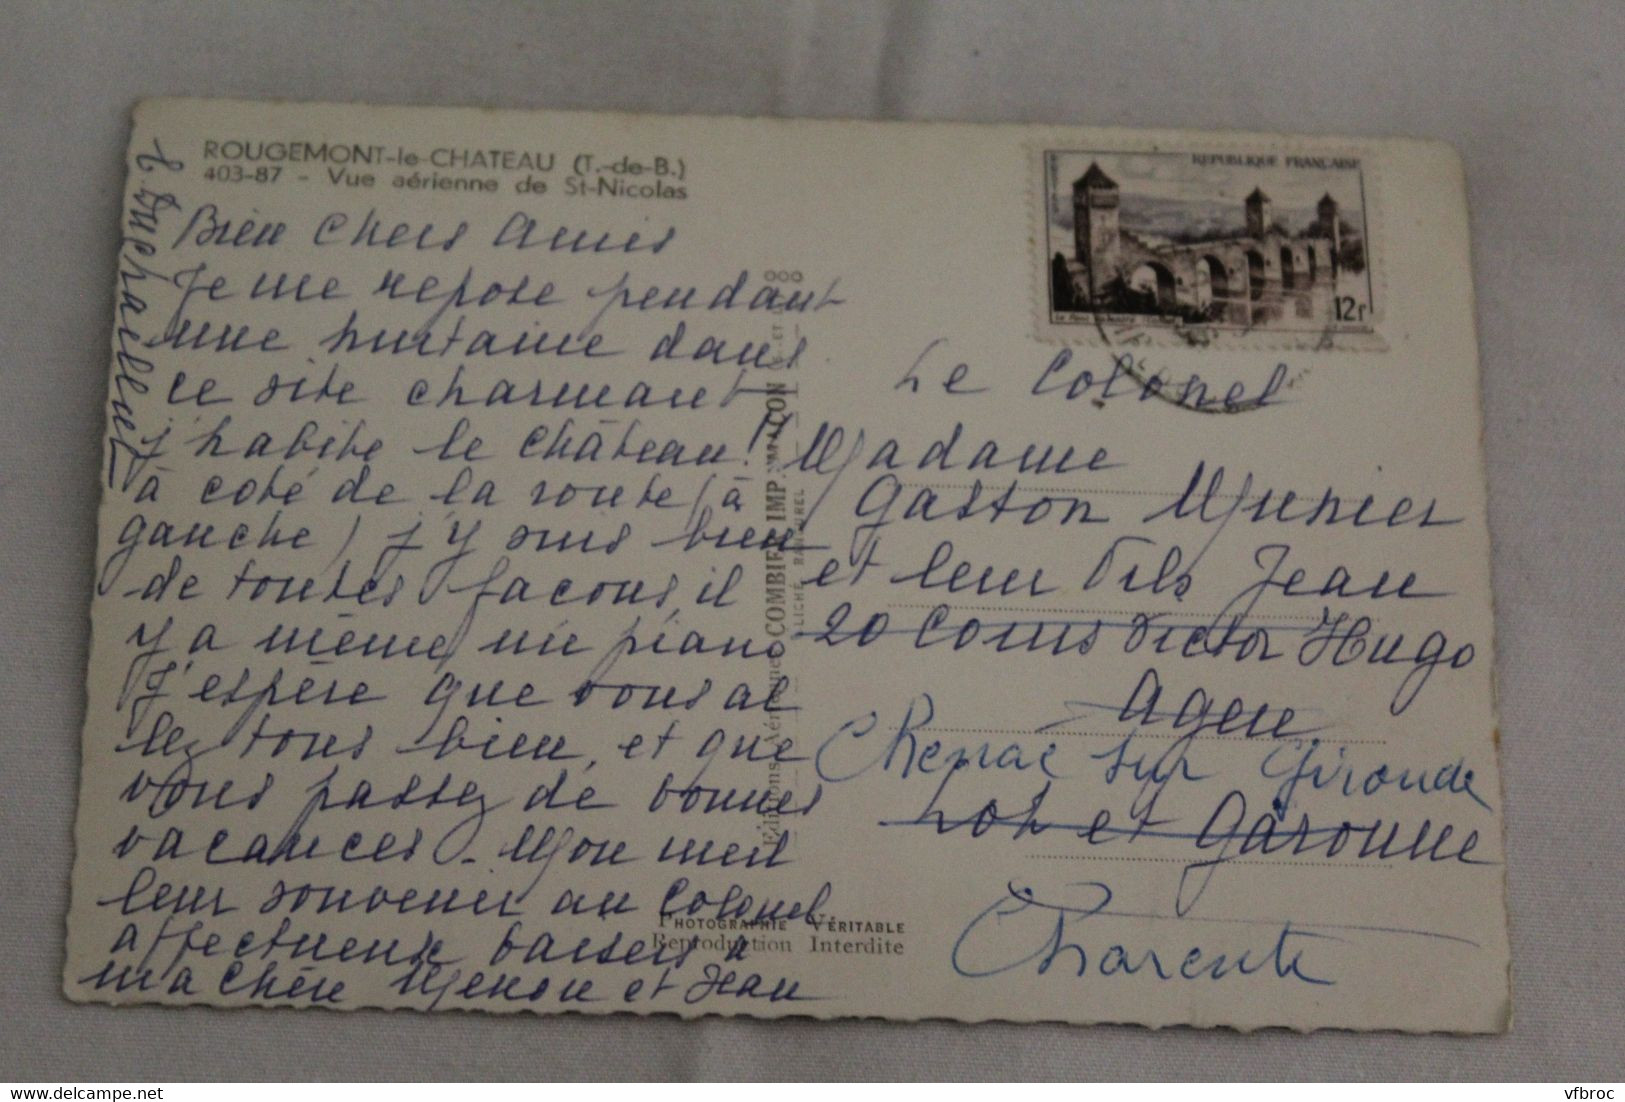 ROUGEMONT-le-CHATEAU (T.-de-B.)
403-87 - Vue aérienne de St-Nicolas
Bien Chers Amis
Je me repose pendant
une huitaine dans
ce site charmant
j'habite le château !
à coté de la route (à
gauche) j'y suis bien
de toutes façons, il
y a même un piano
J'espère que vous al
lez tous bien, et que
vous passez de bonnes
vacances - Mon meil
leur souvenir au Colonel
affectueux baisers à
ma chère et Jean
REPUBLIQUE FRANÇAISE
12f
Le Colonel
Madame
Gaston Munier
et leur Fils Jean
20 Cours Victor Hugo
Agen
Chenac sur Gironde
Lot et Garonne
Charente
Editions Aériennes COMBIER IMP. MACON
PHOTOGRAPHIE VÉRITABLE
Reproduction Interdite
delcampe.net
vfbroc